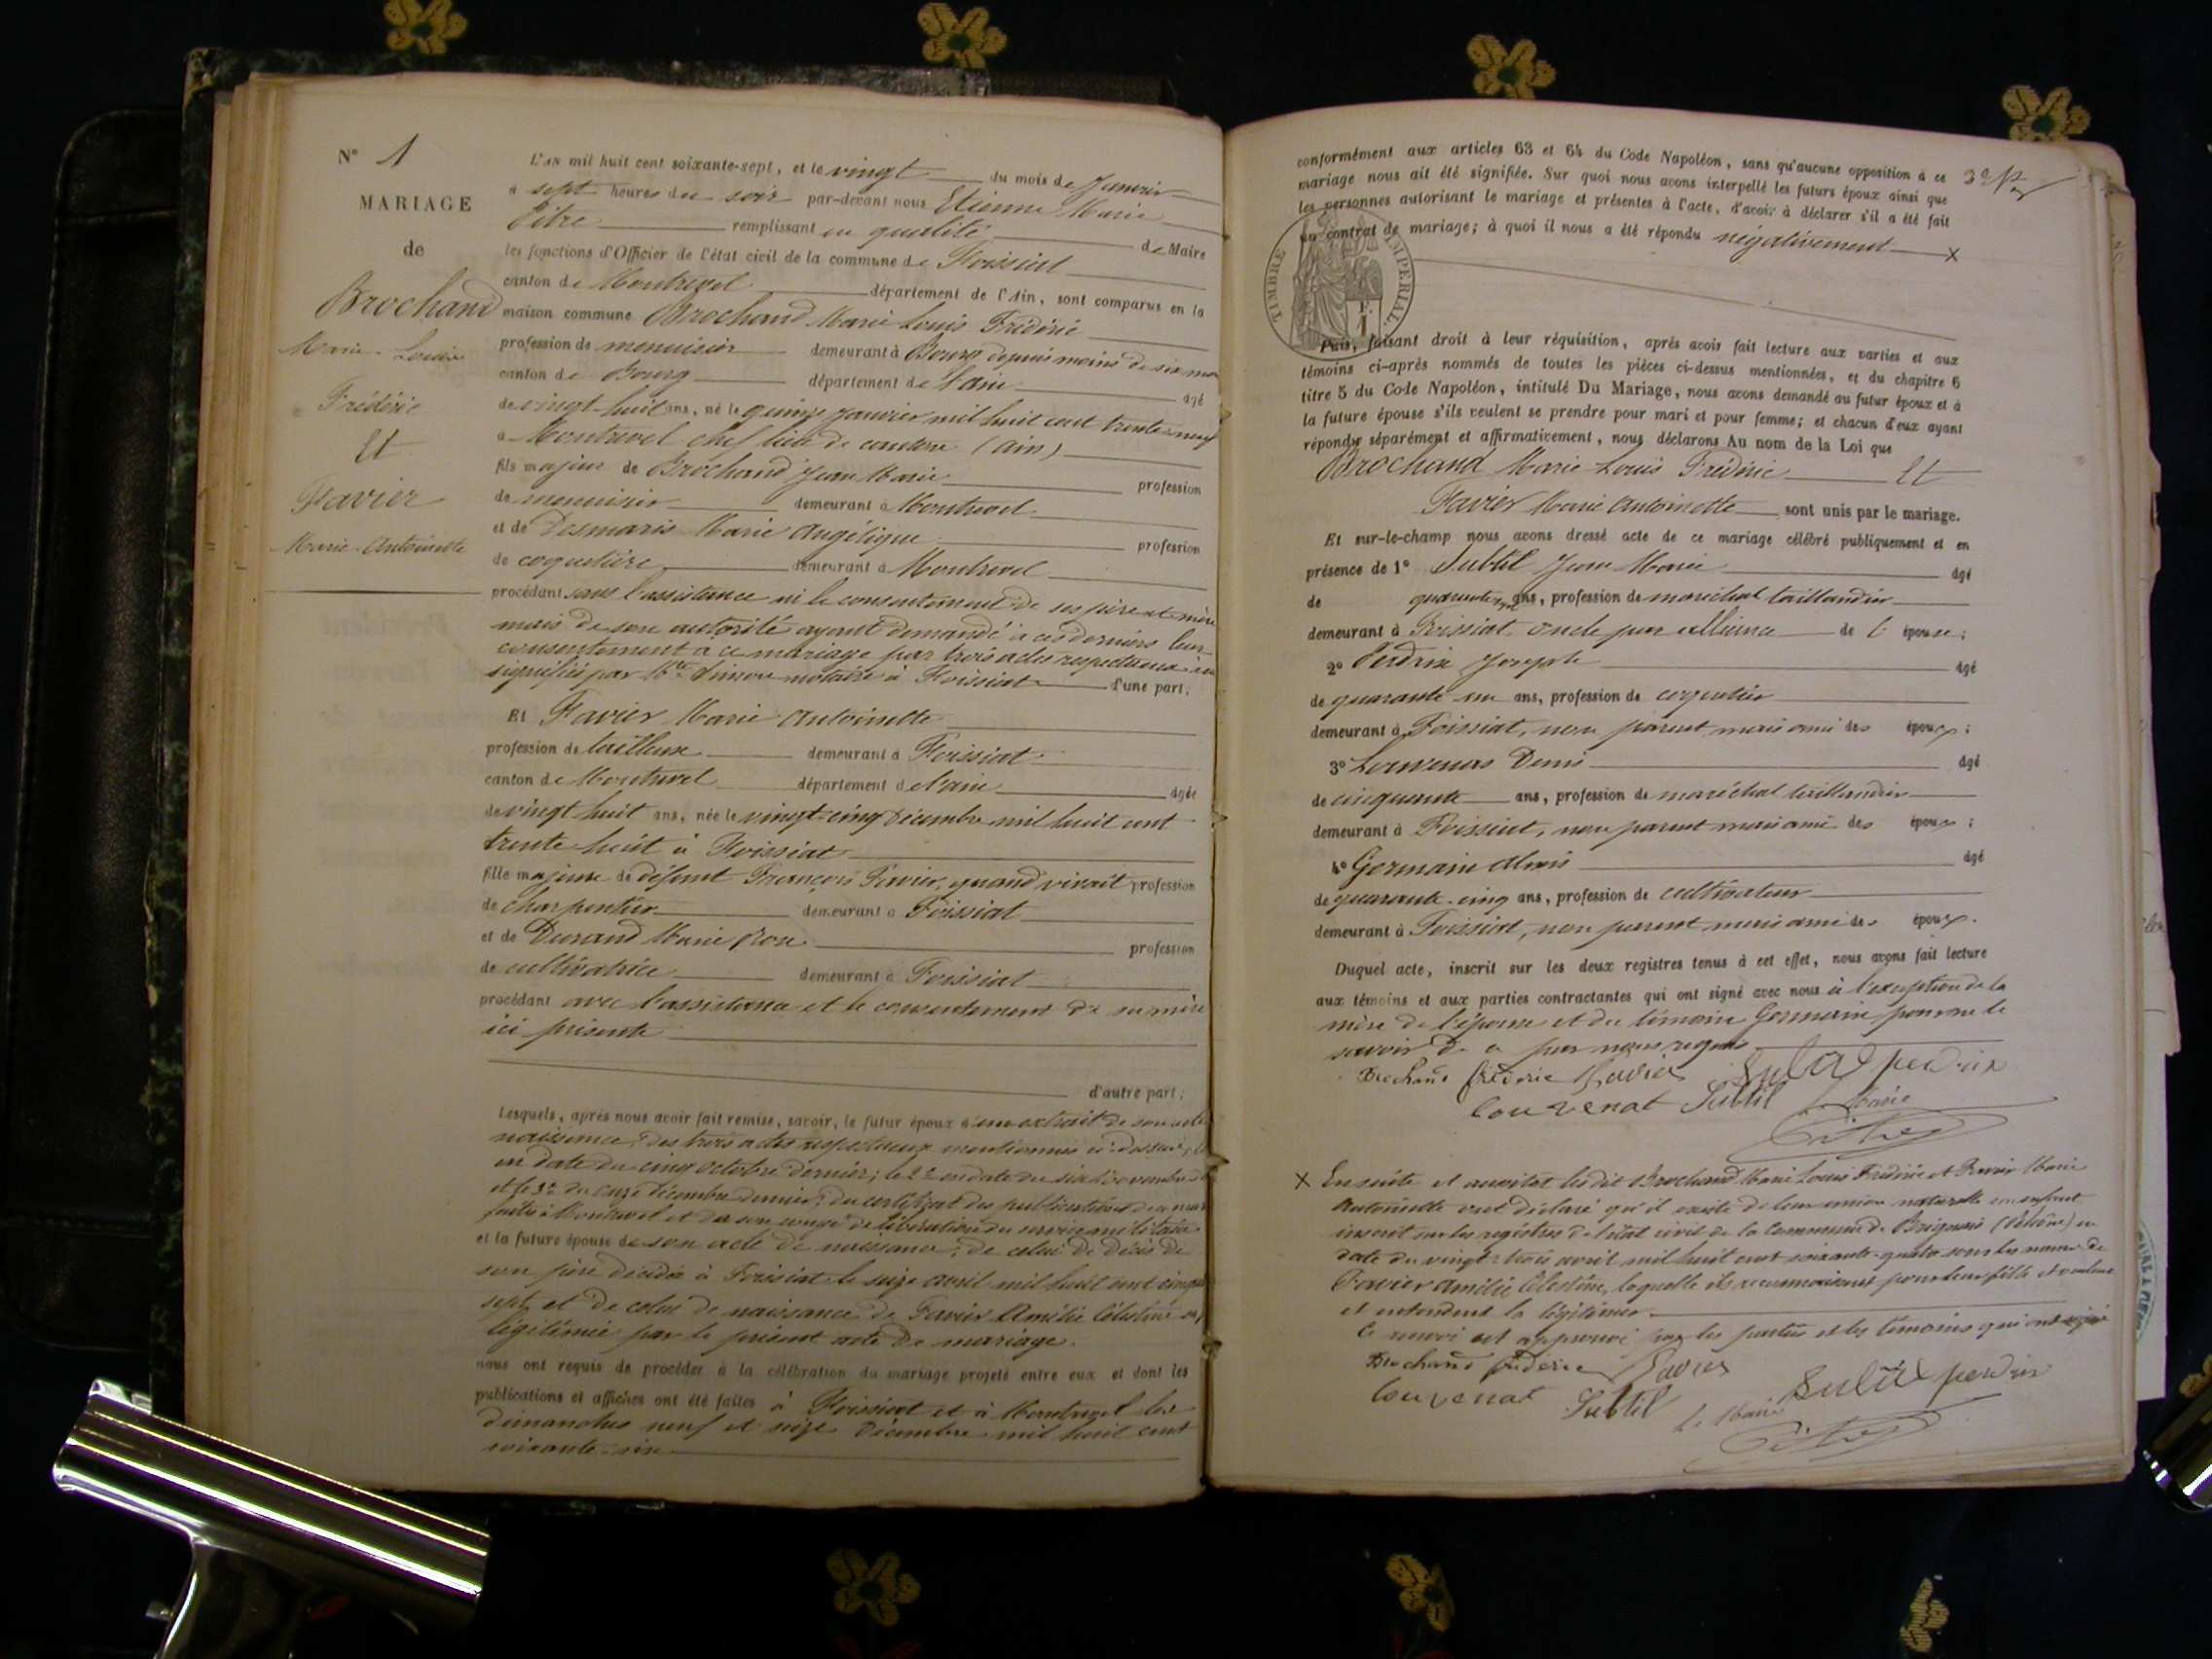 N° 1
MARIAGE
de
Brochand
Marie-Louis
Frédéric
Et
Favier
Marie-Antoinette
L'AN mil huit cent soixante-sept, et le vingt du mois de Janvier
à sept heures du soir par-devant nous Etienne Marie
Pitre remplissant en qualité de Maire
les fonctions d'Officier de l'état civil de la commune de Foissiat
canton de Montrevel département de l'Ain, sont comparus en la
maison commune Brochand Marie Louis Frédéric
profession de menuisier demeurant à Bourg depuis moins de six mois
canton de Bourg département de l'ain âgé
de vingt-huit ans, né le quinze janvier mil huit cent trente-neuf
à Montrevel chef lieu de canton (ain)
fils majeur de Brochand Jean Marie profession
de menuisier demeurant à Montrevel
et de Desmaris Marie Angélique profession
de coquetière demeurant à Montrevel
procédant sans l'assistance ni le consentement de ses père et mère
mais de son autorité ayant demandé à ces derniers leur
consentement à ce mariage par trois actes respectueux
signifiés par Me notaire à Foissiat d'une part;
Et Favier Marie Antoinette
profession de tailleuse demeurant à Foissiat
canton de Montrevel département de l'ain âgée
de vingt huit ans, née le vingt-cinq Décembre mil huit cent
trente-huit à Foissiat
fille majeure de défunt François Favier, quand vivait profession
de charpentier demeurant à Foissiat
et de Durand Marie profession
de cultivatrice demeurant à Foissiat
procédant avec l'assistance et le consentement de sa mère
ici présente
d'autre part;
Lesquels, après nous avoir fait remise, savoir, le futur époux d'un extrait de son acte
naissance, des trois actes respectueux mentionnés ci-dessus,
en date du cinq octobre dernier; le 2e en date du six Novembre
et le 3e du onze décembre dernier; du certificat des publications
faites à Montrevel et de son congé de libération du service militaire
et la future épouse de son acte de naissance, de celui de décès de
son père décédé à Foissiat le seize avril mil huit cent cinquante
sept et de celui de naissance de Favier Amélie Célestine
légitimée par le présent acte de mariage.
nous ont requis de procéder à la célébration du mariage projeté entre eux et dont les
publications et affiches ont été faites à Foissiat et à Montrevel les
dimanches neuf et seize Décembre mil huit cent
soixante-six
conformément aux articles 63 et 64 du Code Napoléon, sans qu'aucune opposition à ce
mariage nous ait été signifiée. Sur quoi nous avons interpellé les futurs époux ainsi que
les personnes autorisant le mariage et présentes à l'acte, d'avoir à déclarer s'il a été fait
un contrat de mariage; à quoi il nous a été répondu négativement x
TIMBRE IMPERIAL
1 F.
Puis, faisant droit à leur réquisition, après avoir fait lecture aux parties et aux
témoins ci-après nommés de toutes les pièces ci-dessus mentionnées, et du chapitre 6
titre 5 du Code Napoléon, intitulé Du Mariage, nous avons demandé au futur époux et à
la future épouse s'ils veulent se prendre pour mari et pour femme; et chacun d'eux ayant
répondu séparément et affirmativement, nous déclarons Au nom de la Loi que
Brochand Marie Louis Frédéric Et
Favier Marie Antoinette sont unis par le mariage.
Et sur-le-champ nous avons dressé acte de ce mariage célébré publiquement et en
présence de 1° Subtil Jean Marie âgé
de ans, profession de maréchal taillandier
demeurant à Foissiat oncle par alliance de l'épouse;
2° Perdrix Joseph âgé
de quarante un ans, profession de coquetier
demeurant à Foissiat, non parent mais ami des époux;
3° Louvenas Denis âgé
de cinquante ans, profession de maréchal taillandier
demeurant à Foissiat, non parent mais ami des époux;
4° Germain Alexis âgé
de quarante-cinq ans, profession de cultivateur
demeurant à Foissiat, non parent mais ami des époux.
Duquel acte, inscrit sur les deux registres tenus à cet effet, nous avons fait lecture
aux témoins et aux parties contractantes qui ont signé avec nous à l'exception de la
mère de l'épouse et du témoin Germain, pour ne le
savoir de ce par nous requis
Brochand frédéric Favier Subtil perdrix
Louvenat Subtil Le Maire
Pitre
x Ensuite et aussitôt les dits Brochand Marie Louis Frédéric et Favier Marie
Antoinette ont déclaré qu'il existe de leur union naturelle un enfant
inscrit sur les registres de l'état civil de la Commune de Brignais (Rhône) en
date du vingt-trois avril mil huit cent soixante-quatre sous les noms de
Favier Amélie Célestine, laquelle ils reconnaissent pour leur fille et veulent
et entendent la légitimer.
Ce renvoi est approuvé par les parties et les témoins qui ont signé
Brochand frédéric Favier
Louvenat Subtil Le Maire Subtil perdrix
Pitre